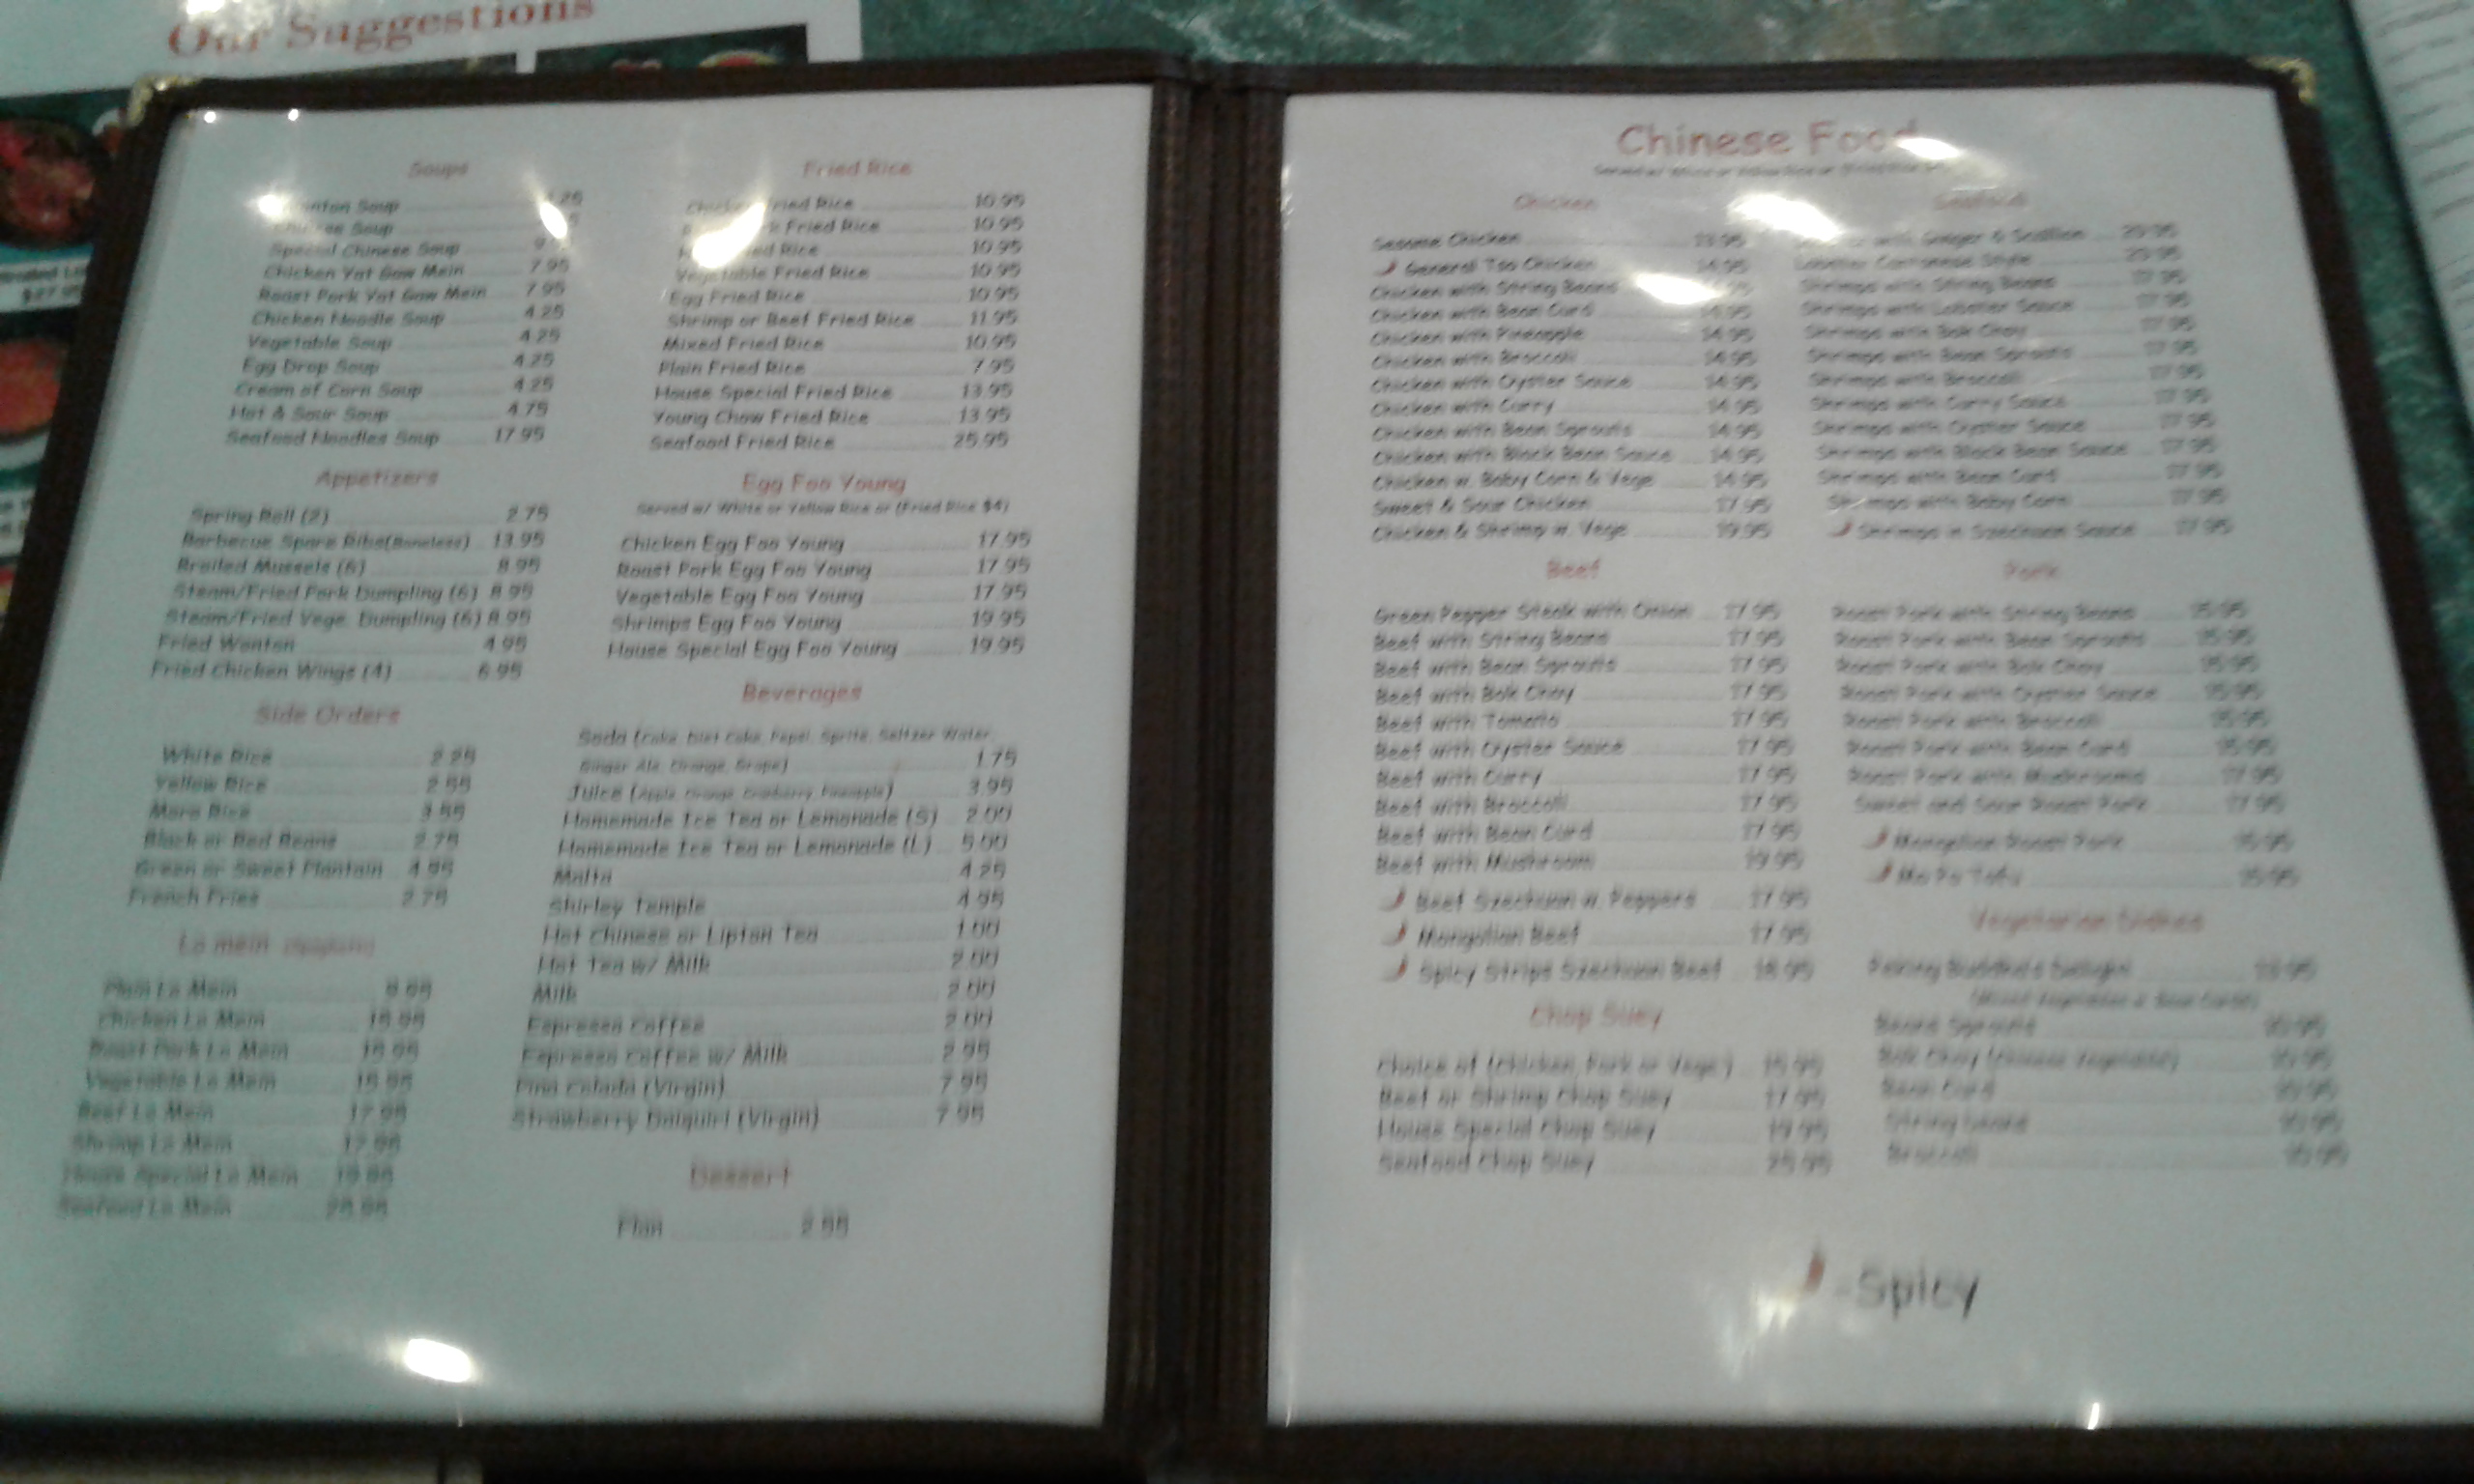 Our Suggestions
Soups
Soup 4.25
Soup
Special Chinese Soup
Chicken Yat Gaw Mein 7.95
Roast Pork Yat Gaw Mein 7.95
Chicken Noodle Soup 4.25
Vegetable Soup 4.25
Egg Drop Soup 4.25
Cream of Corn Soup 4.25
Hot & Sour Soup 4.75
Seafood Noodles Soup 17.95
Appetizers
Spring Roll (2) 2.75
Barbecue Spare Ribs(Boneless) 13.95
Broiled Mussels (6) 8.95
Steam/Fried Pork Dumpling (6) 8.95
Steam/Fried Vege. Dumpling (6) 8.95
Fried Wonton 4.95
Fried Chicken Wings (4) 6.95
Side Orders
White Rice 2.25
Yellow Rice 2.55
Moro Rice 3.55
Black or Red Beans 2.75
Green or Sweet Plantain 4.95
French Fries 2.75
Lo mein
Plain Lo Mein
Chicken Lo Mein 15.95
Roast Pork Lo Mein 15.95
Vegetable Lo Mein 15.95
Beef Lo Mein 17.95
Shrimp Lo Mein 17.95
House Special Lo Mein 19.95
Seafood Lo Mein
Fried Rice
Fried Rice 10.95
Fried Rice 10.95
Rice 10.95
Vegetable Fried Rice 10.95
Egg Fried Rice 10.95
Shrimp or Beef Fried Rice 11.95
Mixed Fried Rice 10.95
Plain Fried Rice 7.95
House Special Fried Rice 13.95
Young Chow Fried Rice 13.95
Seafood Fried Rice 25.95
Egg Foo Young
Served w/ White or Yellow Rice or (Fried Rice $4)
Chicken Egg Foo Young 17.95
Roast Pork Egg Foo Young 17.95
Vegetable Egg Foo Young 17.95
Shrimps Egg Foo Young 19.95
House Special Egg Foo Young 19.95
Beverages
Soda (Coke, Diet Coke, Pepsi, Sprite, Seltzer Water,
Ginger Ale, Orange, Grape) 1.75
Juice (Apple, Orange, Cranberry, Pineapple) 3.95
Homemade Ice Tea or Lemonade (S) 2.00
Homemade Ice Tea or Lemonade (L) 5.00
Malta 4.25
Shirley Temple 4.95
Hot Chinese or Lipton Tea 1.00
Hot Tea w/ Milk 2.00
Milk 2.00
Espresso Coffee 2.00
Espresso Coffee w/ Milk 2.95
Pina Colada (Virgin) 7.95
Strawberry Daiquiri (Virgin) 7.95
Dessert
Flan 2.95
Chinese Food
Chicken
Sesame Chicken
General Tso Chicken 14.95
Chicken with String Beans
Chicken with Bean Curd 14.95
Chicken with Pineapple 14.95
Chicken with Broccoli 14.95
Chicken with Oyster Sauce 14.95
Chicken with Curry 14.95
Chicken with Bean Sprouts 14.95
Chicken with Black Bean Sauce 14.95
Chicken w. Baby Corn & Vege 14.95
Sweet & Sour Chicken 17.95
Chicken & Shrimp w. Vege 19.95
Beef
Green Pepper Steak with Onion 17.95
Beef with String Beans 17.95
Beef with Bean Sprouts 17.95
Beef with Bok Choy 17.95
Beef with Tomato 17.95
Beef with Oyster Sauce 17.95
Beef with Curry 17.95
Beef with Broccoli 17.95
Beef with Bean Curd 17.95
Beef with Mushroom 19.95
Beef Szechuan w. Peppers 17.95
Mongolian Beef 17.95
Spicy Strips Szechuan Beef 18.95
Chop Suey
Choice of (Chicken, Pork or Vege.) 15.95
Beef or Shrimp Chop Suey 17.95
House Special Chop Suey 19.95
Seafood Chop Suey 25.95
Seafood
with Ginger & Scallion
Lobster Cantonese Style
Shrimps with String Beans 17.95
Shrimps with Lobster Sauce 17.95
Shrimps with Bok Choy 17.95
Shrimps with Bean Sprouts 17.95
Shrimps with Broccoli 17.95
Shrimps with Curry Sauce 17.95
Shrimps with Oyster Sauce 17.95
Shrimps with Black Bean Sauce 17.95
Shrimps with Bean Curd 17.95
Shrimps with Baby Corn 17.95
Shrimps in Szechuan Sauce 17.95
Pork
Roast Pork with String Beans 15.95
Roast Pork with Bean Sprouts 15.95
Roast Pork with Bok Choy 15.95
Roast Pork with Oyster Sauce 15.95
Roast Pork with Broccoli 15.95
Roast Pork with Bean Curd 15.95
Roast Pork with Mushrooms 17.95
Sweet and Sour Roast Pork 17.95
Mongolian Roast Pork 15.95
Ma Po Tofu 15.95
Vegetarian Dishes
Buddha's Delight
(Mixed Vegetables & Bean Curd)
Beans Sprouts 10.95
Bok Choy (Chinese Vegetable) 10.95
Bean Curd 10.95
String beans 10.95
Broccoli 10.95
-Spicy